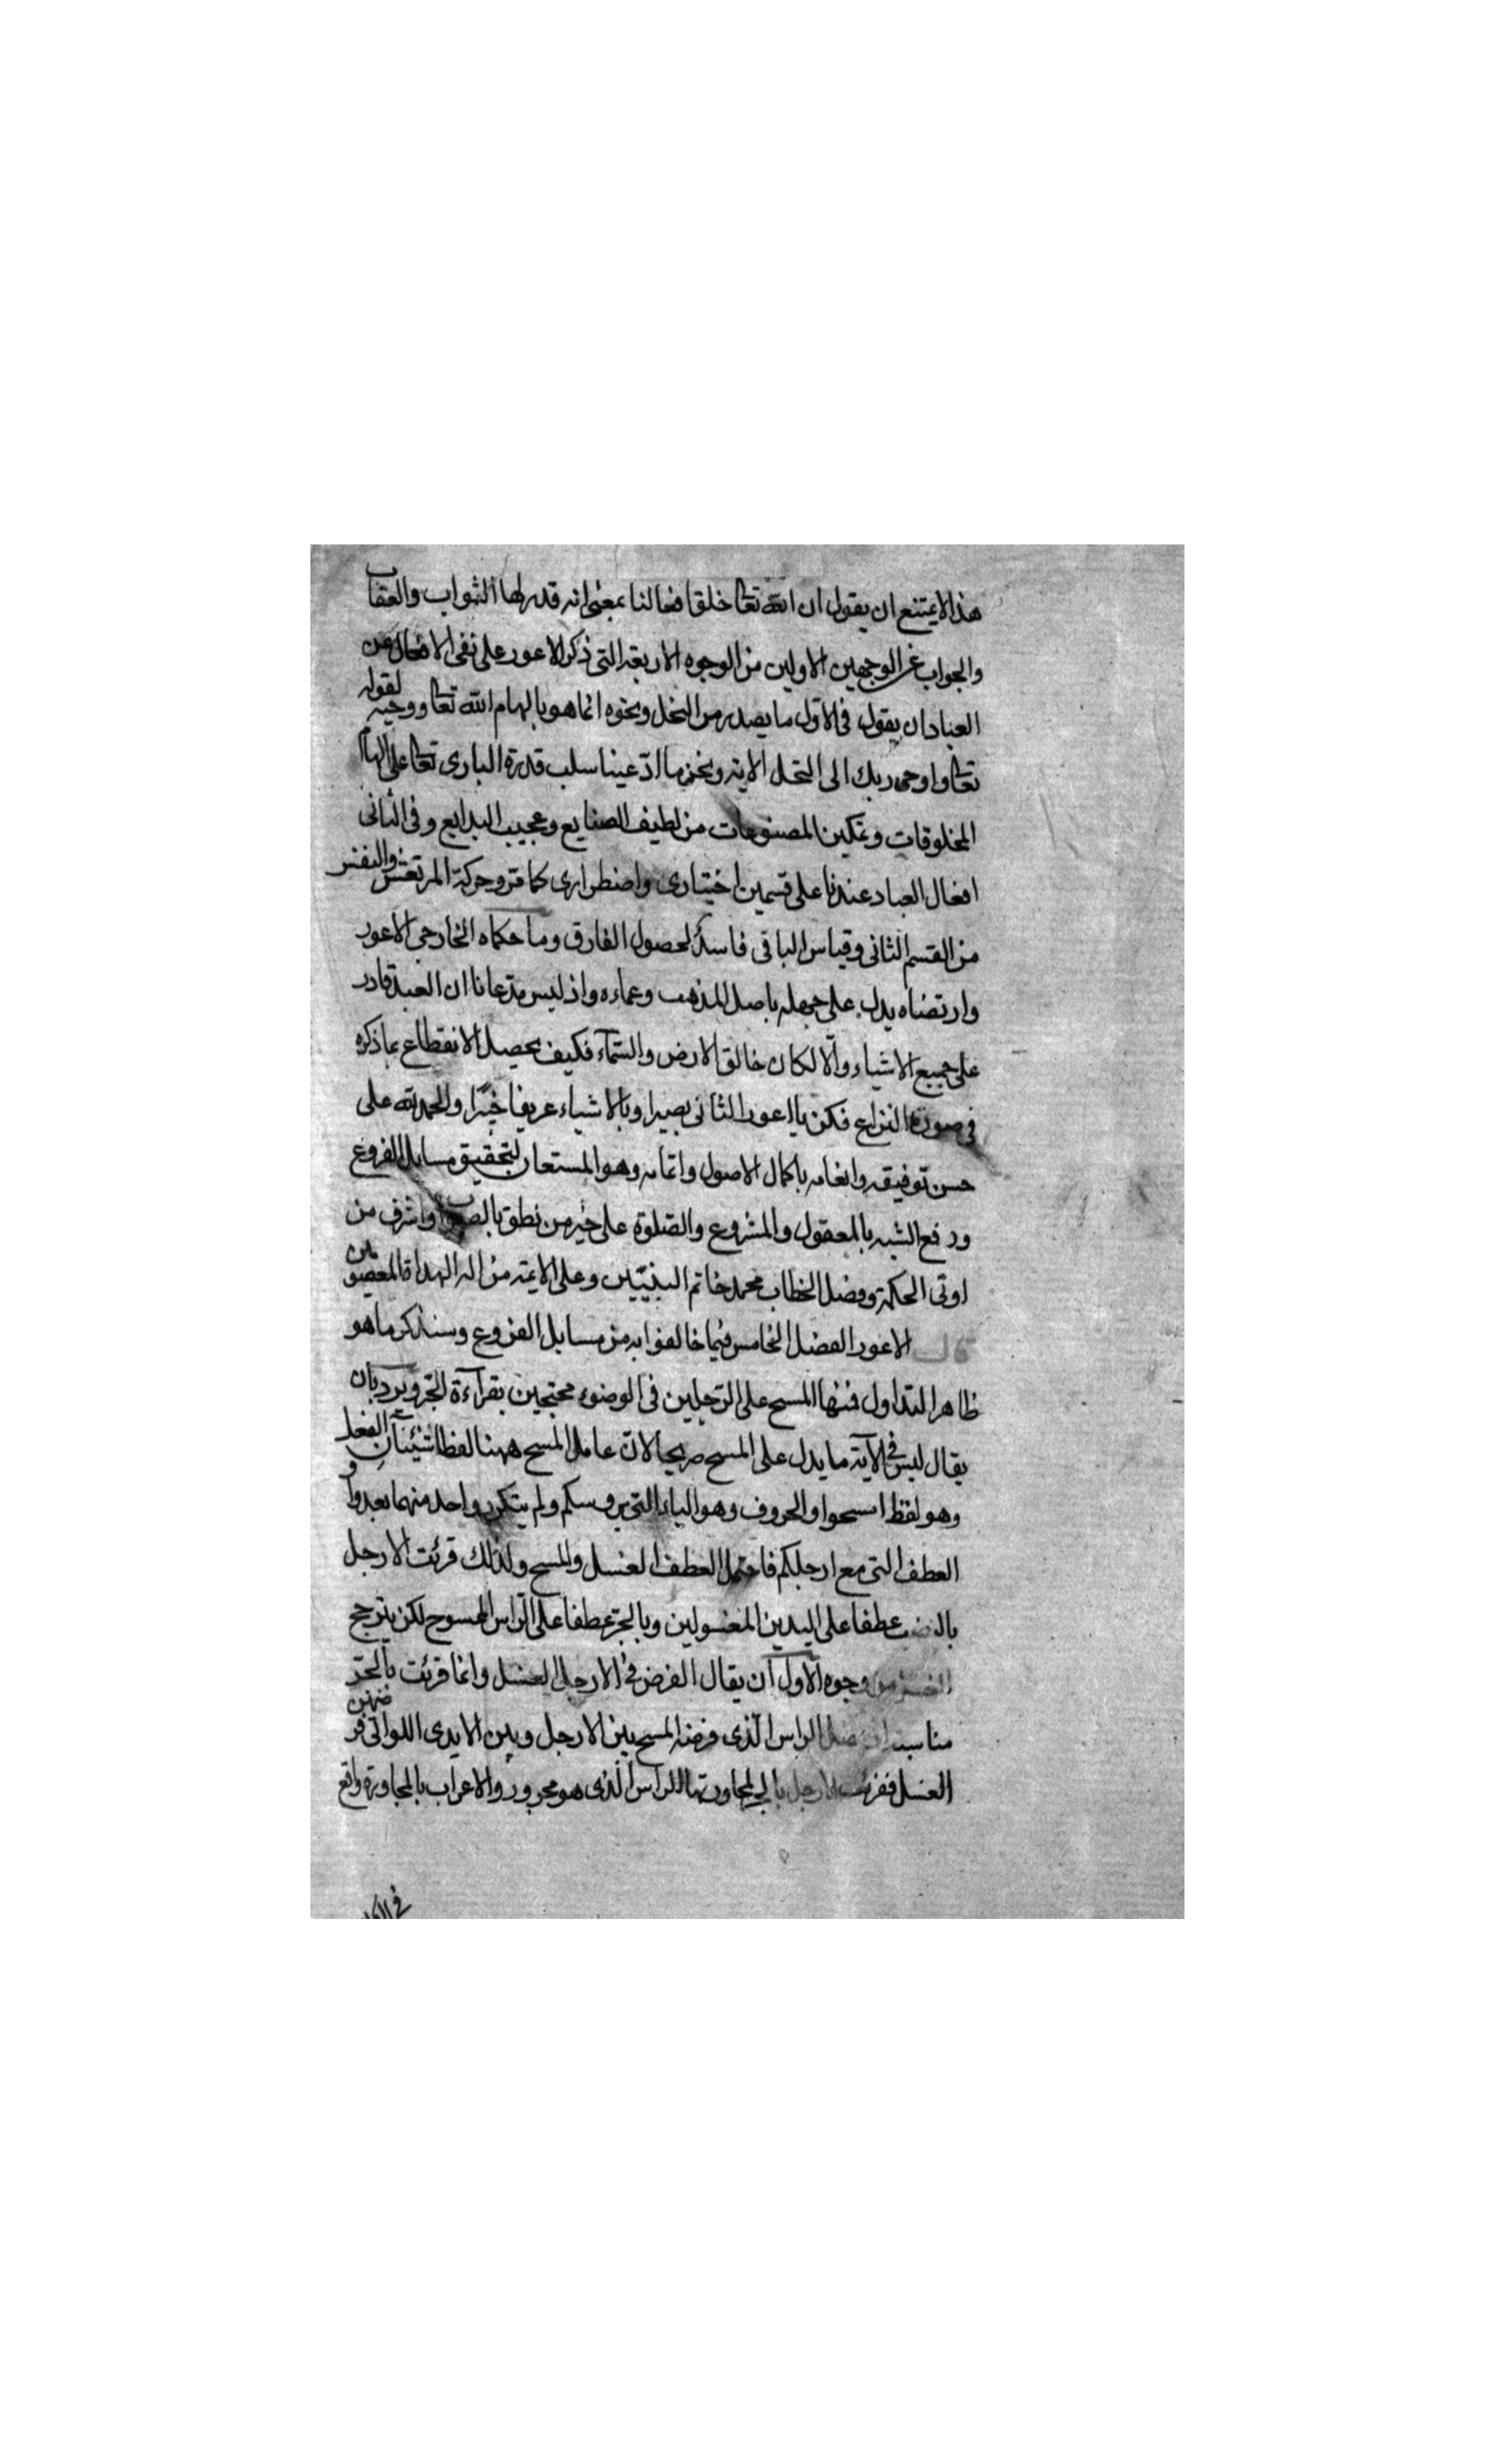 هذا لا يمتنع ان يقول ان الله تعا خلق افعالنا بمعنى انه قدر لها الثواب والعقاب
والجواب عن الوجهين الاولين من الوجوه الاربعة التى ذكر الاعور على نفى الافعال عن
العباد ان يقول فى الاول ما يصدر من النحل ونحوه انما هو بالهام الله تعا ووحيه لقوله
تعا واوحى ربك الى النحل الاية ونحن ما ادّعينا سلب قدرة البارى تعا على الهام
المخلوقات وتمكين المصنوعات من لطيف الصنايع وعجيب البدايع وفى الثانى
افعال العباد عندنا على قسمين اختيارى واضطرارى كما مرّ وحركة المرتعش والنفس
من القسم الثانى وقياس الباقى فاسد لحصول الفارق وما حكاه الخارجى الاعور
وارتضاه يدل على جهله باصل المذهب وعماه واذ ليس مدعانا ان العبد قادر
على جميع الاشياء والّا لكان خالق الارض والسّمآء فكيف يحصل الانقطاع بما ذكره
فى صورة النزاع فكن يا اعور الثانى بصيرا وبالاشياء عريفا خبيرًا والحمد لله على
حسن توفيقه وانعامه باكمال الاصول واتمامه وهو المستعان لتحقيق مسايل الفروع
ودفع الشبه بالمعقول والمشروع والصّلوة على خير من نطق بالصواب واشرف من
اوتى الحكمة وفصل الخطاب محمد خاتم النبيّين وعلى الائمة من اله الهداة المعصومين
قال الاعور الفصل الخامس فيما خالفوا به من مسايل الفروع وسنذكر ما هو
ظاهر التداول فمنها المسح على الرّجلين فى الوضوء محتجين بقرآءة الجرّ ويرد بان
يقال ليس فى الآية ما يدل على المسح صريحا لانّ عامل المسح ههنا لفظا شيئان الفعل
وهو لفظ امسحوا والحروف وهو الباء التى بروسكم ولم يتكرر واحد منهما بعد واو
العطف التى مع ارجلكم فاحتمل العطف الغسل والمسح ولذلك قرئت الارجل
بالنصب عطفا على اليدين المغسولين وبالجرّ عطفا على الرّاس الممسوح لكن يترجح
الغسل من وجوه الاول ان يقال الفرض فى الارجل الغسل وانما قرئت بالجرّ
مناسبة الراس الّذى فرضه المسح بين الارجل وبين الايدى اللواتى فرضهن
الغسل فقرئت الارجل بالجر لمجاورتها الراس الّذى هو مجرور والاعراب بالمجاورة واقع